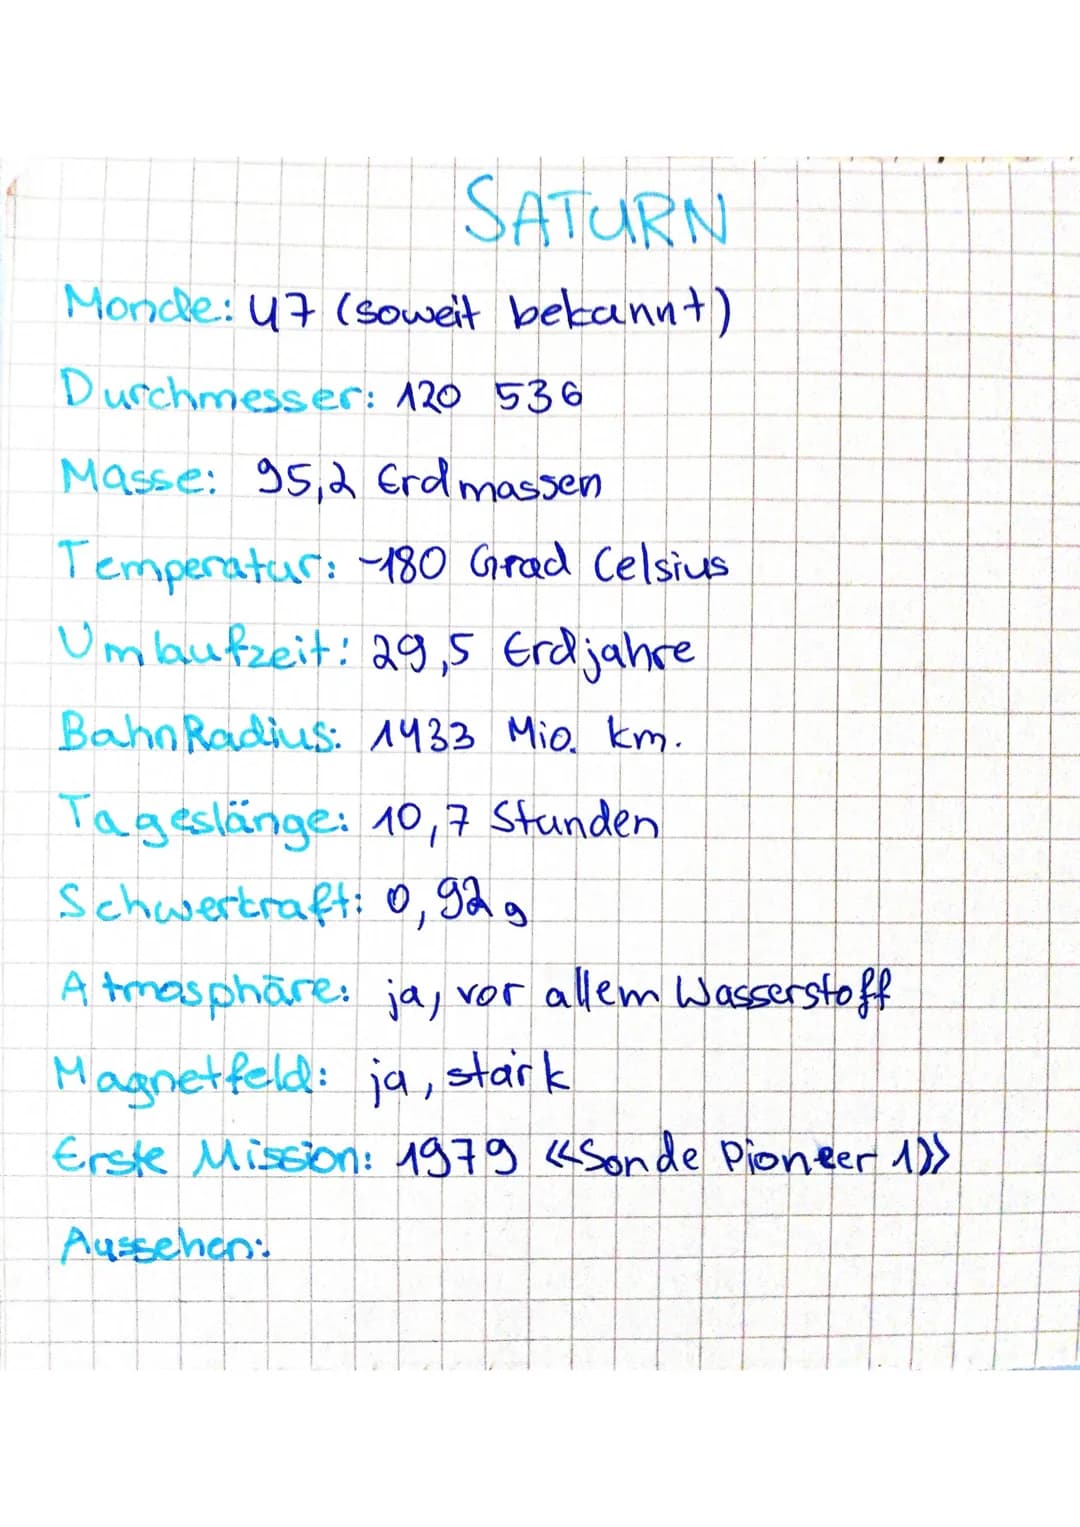 SATURN
Monde: 47 (soweit bekannt)
Durchmesser: 120 536
Masse: 95,2 Erdmassen
Temperatur: -180 Grad Celsius
Umlaufzeit: 29,5 Erdjahre
BahnRadius: 1433 Mio. km.
Tageslänge: 10,7 Stunden
Schwerkraft: 0,92g
Atmosphäre: ja, vor allem Wasserstoff
Magnetfeld: ja, stark
Erste Mission: 1979 «Sonde Pioneer 1»
Aussehen: